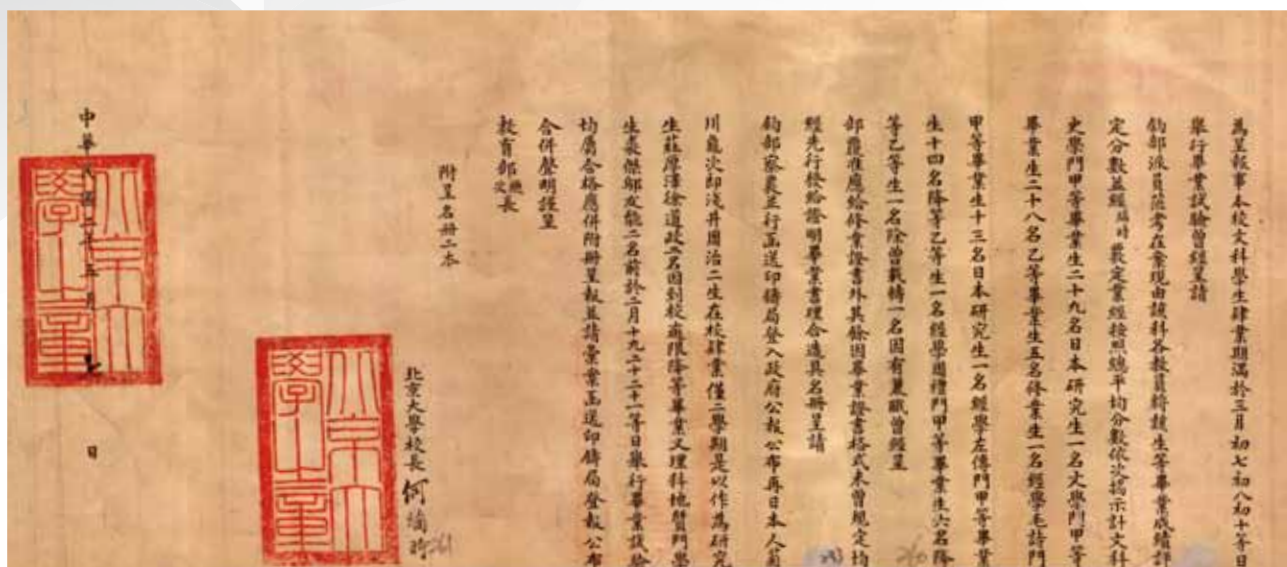 為呈報事本校文科學生肄業期滿於三月初七初八初十等日
舉行畢業試驗曾經呈請
鈞部派員蒞考在案現由該科各教員將該生等畢業成績評
定分數並經燏時覈定業經按照總平均分數依次揭示計文科
史學門甲等畢業生二十九名日本研究生一名文學門甲等
畢業生二十八名乙等畢業生五名修業生一名經學毛詩門
甲等畢業生十三名日本研究生一名經學左傳門甲等畢業
生十四名降等乙等生一名經學周禮門甲等畢業生六名降
等乙等生一名除曾載幬一名因有兼職曾經呈
部覆准應給修業證書外其餘因畢業證書格式未曾規定均
經先行發給證明畢業書理合造具名冊呈請
鈞部察覈並行函送印鑄局登入政府公報公布再日本人
川龜次郎淺井周治二生在校肄業僅二學期是以作為研究
生莊厚澤徐道政二名因到校逾限降等畢業又理科地質門學
生裘傑鄔友能二名前於二月十九二十二十一等日舉行畢業試驗
均屬合格應併附冊呈報並請彙案函送印鑄局登報公布
合併聲明謹呈
教育部總次長
附呈名冊二本
北京大學校長何燏時
大京北學之章
中華民國二年五月七日
大京北學之章